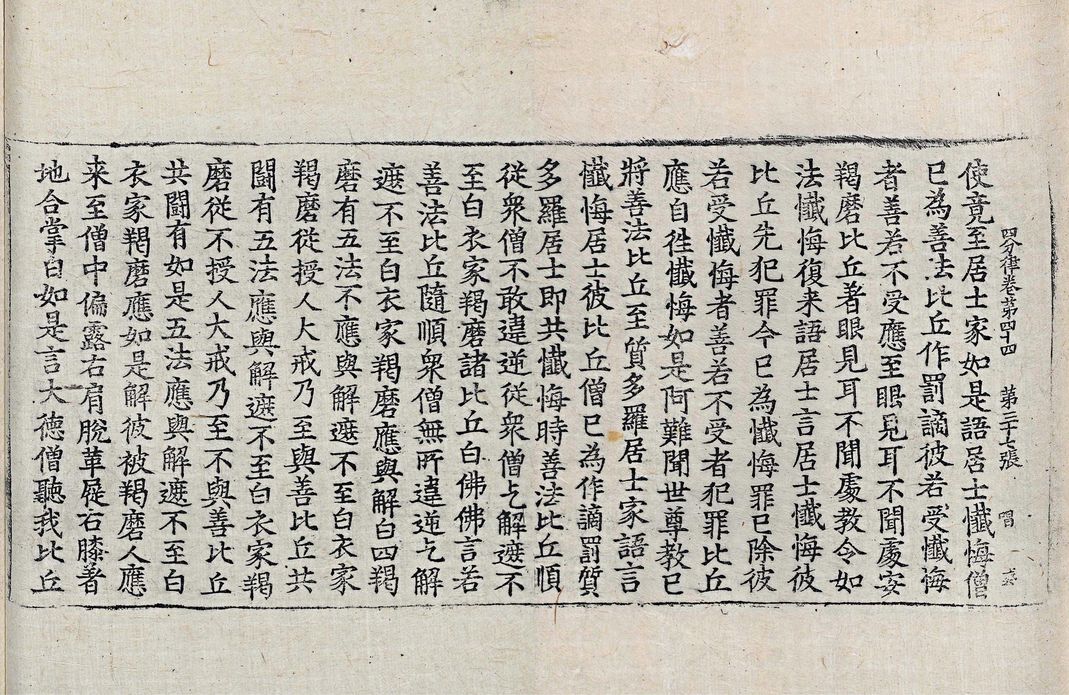 四分律卷第四十四　第二十七張　唱
使竟至居士家如是語居士懺悔僧
已為善法比丘作罰謫彼若受懺悔
者善若不受應至眼見耳不聞處安
羯磨比丘著眼見耳不聞處教令如
法懺悔復来語居士言居士懺悔彼
比丘先犯罪今已為懺悔罪已除彼
若受懺悔者善若不受者犯罪比丘
應自往懺悔如是阿難聞世尊教已
將善法比丘至質多羅居士家語言
懺悔居士彼比丘僧已為作謫罰質
多羅居士即共懺悔時善法比丘順
從衆僧不敢違逆從衆僧乞解遮不
至白衣家羯磨諸比丘白佛佛言若
善法比丘隨順衆僧無所違逆乞解
遮不至白衣家羯磨應與解白四羯
磨有五法不應與解遮不至白衣家
羯磨從授人大戒乃至與善比丘共
鬪有五法應與解遮不至白衣家羯
磨從不授人大戒乃至不與善比丘
共鬪有如是五法應與解遮不至白
衣家羯磨應如是解彼被羯磨人應
来至僧中偏露右肩脫革屣右膝著
地合掌白如是言大德僧聽我比丘